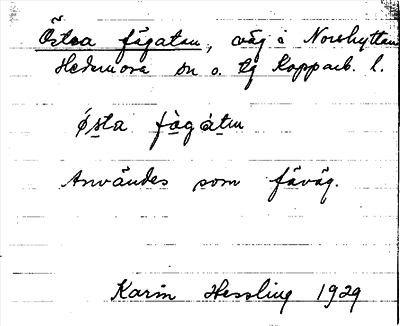 Östra fägatan, väg i Norshyttan
Hedemora sn o. tg Kopparb. l.
ǿsta fàgátın
Användes som fäväg.
Karin Hessling 1929